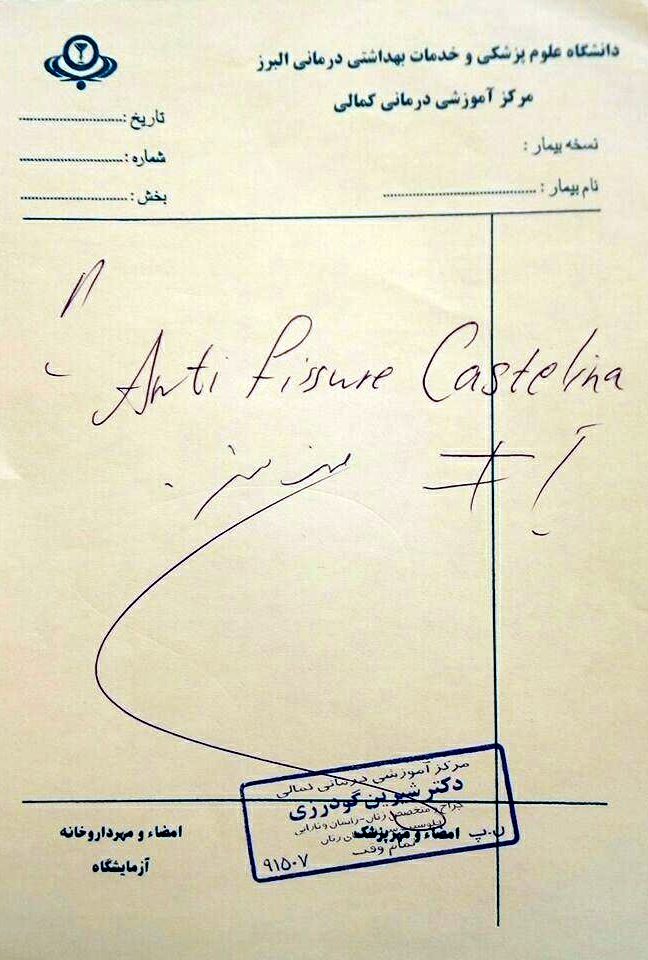 دانشگاه علوم پزشکی و خدمات بهداشتی درمانی البرز
مرکز آموزشی درمانی کمالی
نسخه بیمار :
نام بیمار :
تاریخ :
شماره :
بخش :
Anti fissure Castelina
مرکز آموزشی درمانی کمالی
دکتر شیرین گودرزی
جراح و متخصص زنان-زایمان و نازایی
تمام وقت
ن.پ ۹۱۵۰۷
امضاء و مهر پزشک
امضاء و مهر داروخانه
آزمایشگاه